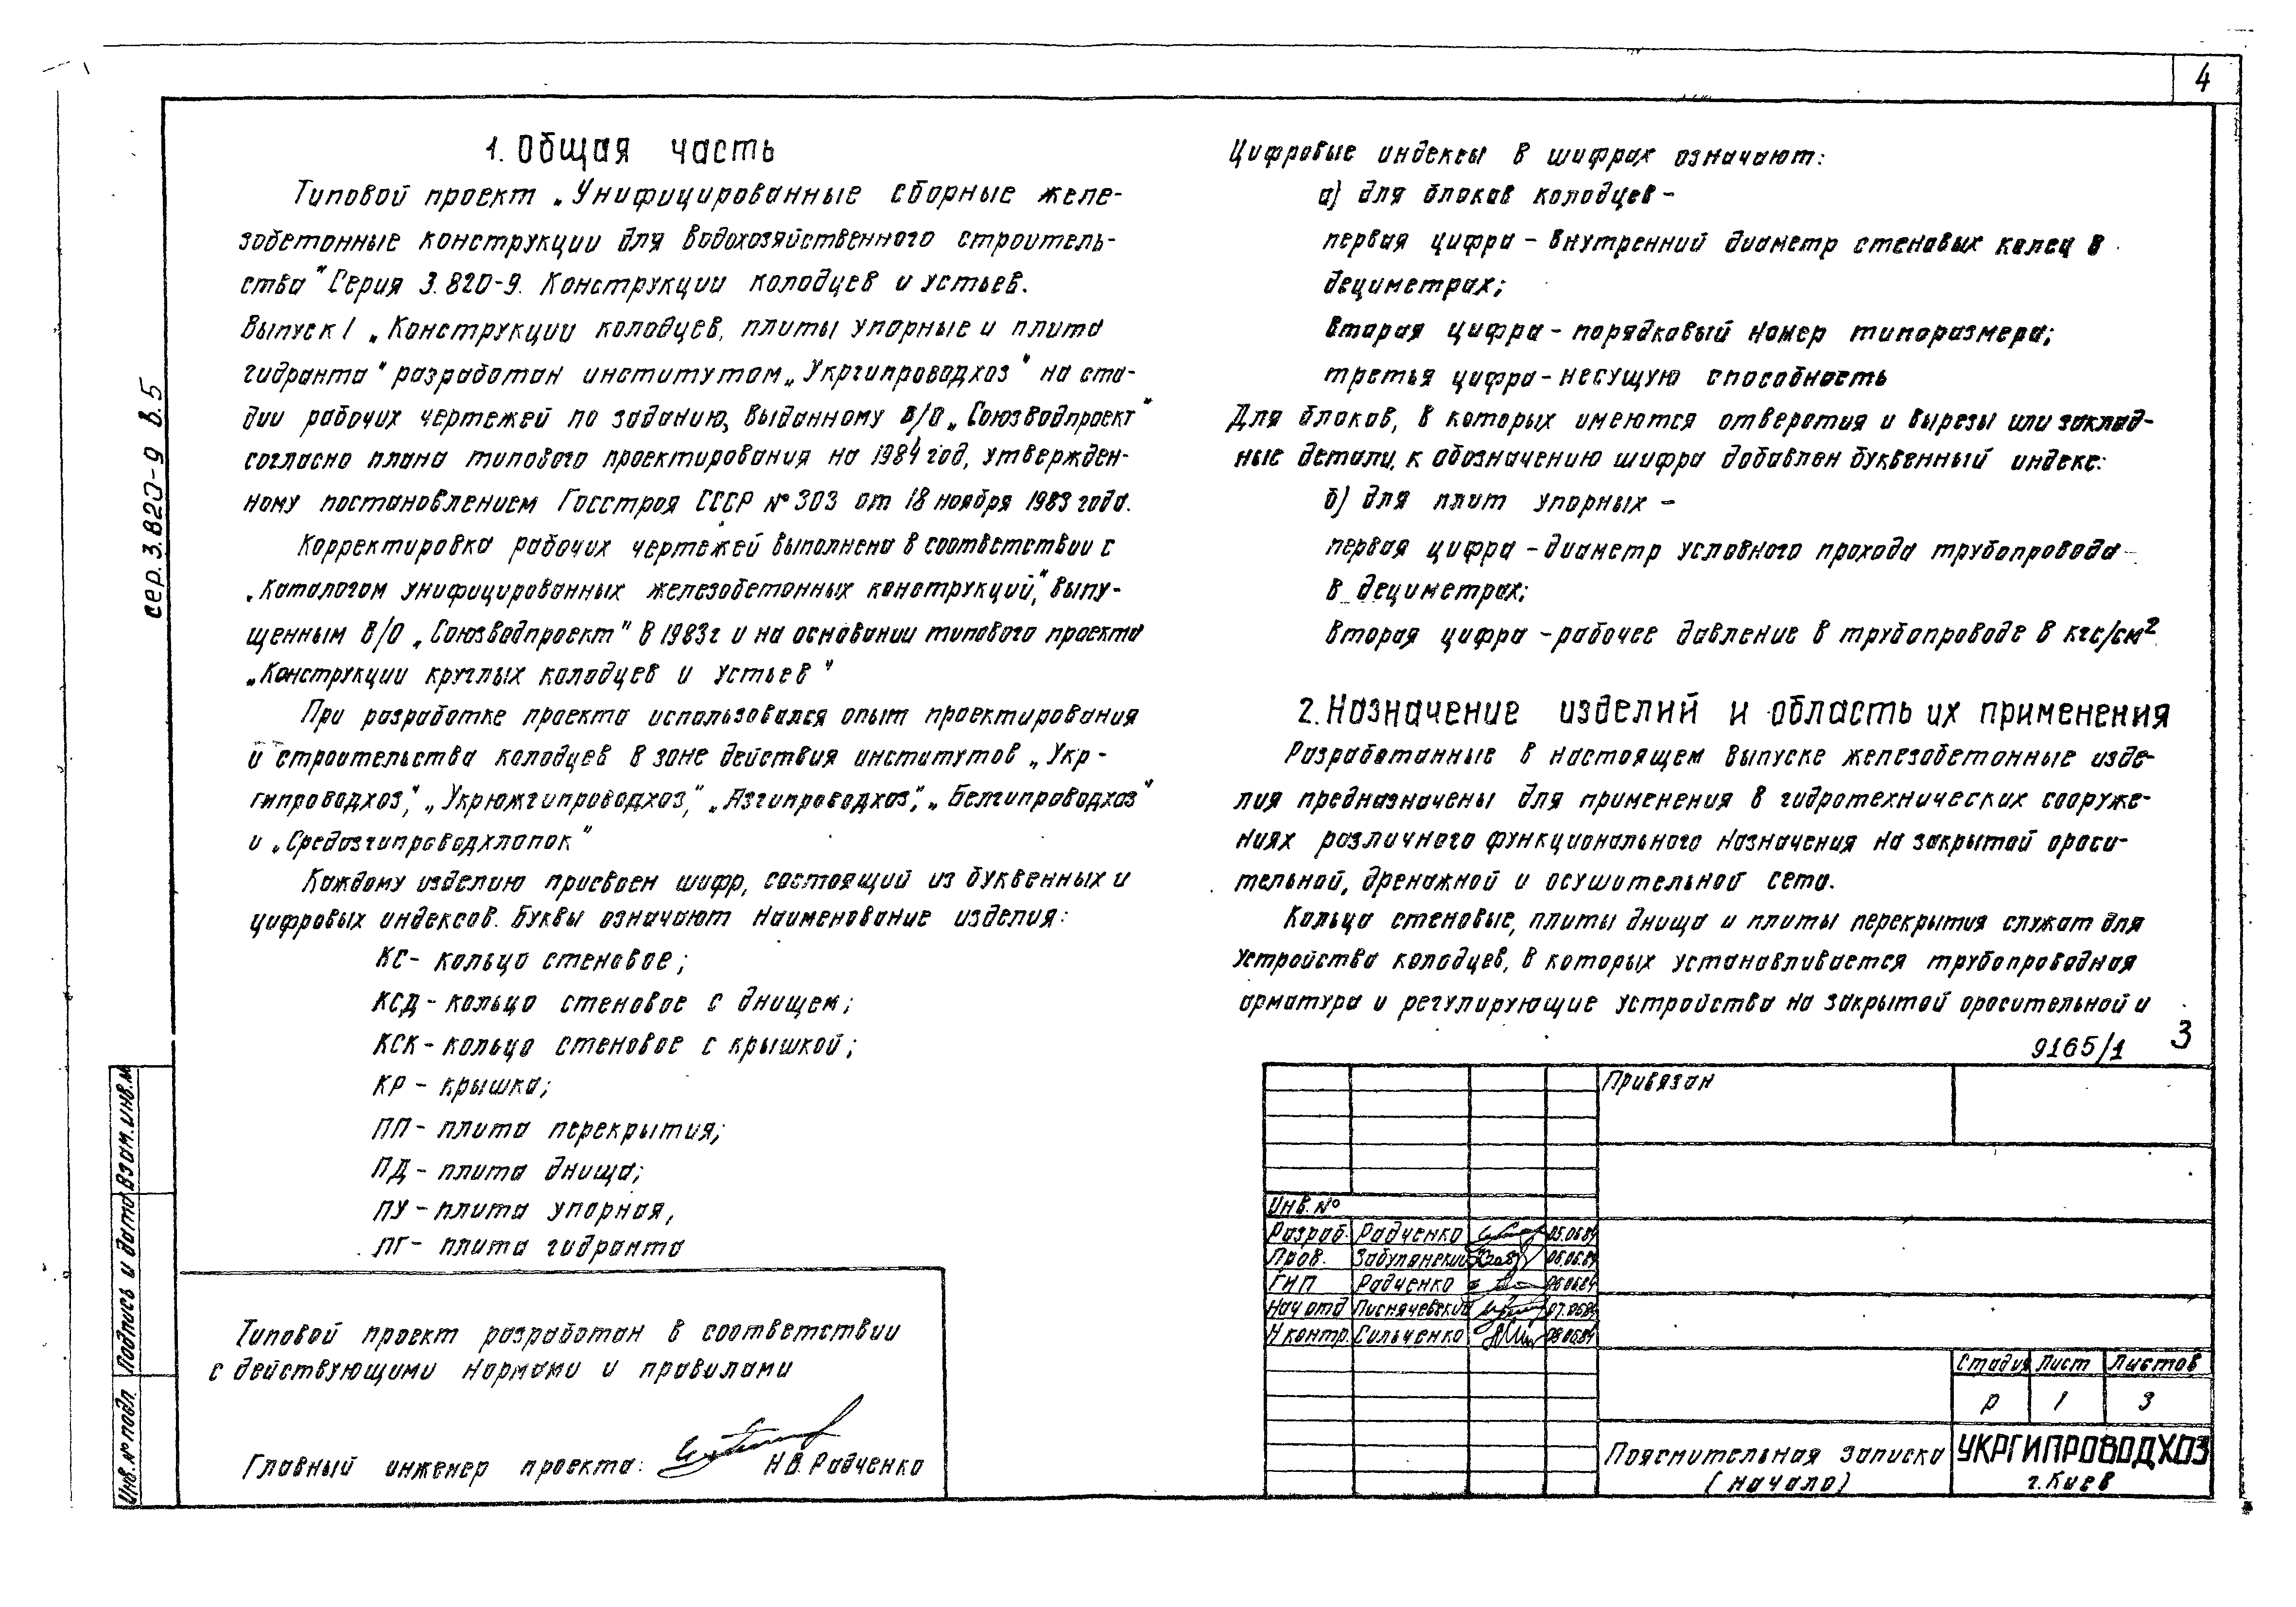 4
сер. 3.820-9 в.5
1. Общая часть
Типовой проект „Унифицированные сборные желе-
зобетонные конструкции для водохозяйственного строитель-
ства" Серия 3.820-9. Конструкции колодцев и устьев.
Выпуск 1 „Конструкции колодцев, плиты упорные и плита
гидранта" разработан институтом „Укргипроводхоз" на ста-
дии рабочих чертежей по заданию, выданному В/О „Союзводпроект"
согласно плана типового проектирования на 1984 год, утвержден-
ному постановлением Госстроя СССР № 303 от 18 ноября 1983 года.
Корректировка рабочих чертежей выполнена в соответствии с
„Каталогом унифицированных железобетонных конструкций", выпу-
щенным В/О „Союзводпроект" в 1983г и на основании типового проекта
„Конструкции круглых колодцев и устьев"
При разработке проекта использовался опыт проектирования
и строительства колодцев в зоне действия институтов „Укр-
гипроводхоз", „Укрюжгипроводхоз", „Азгипроводхоз", „Белгипроводхоз"
и „Средазгипроводхлопок"
Каждому изделию присвоен шифр, состоящий из буквенных и
цифровых индексов. Буквы означают наименование изделия:
КС - кольцо стеновое;
КСД - кольцо стеновое с днищем;
КСК - кольцо стеновое с крышкой;
КР - крышка;
ПП - плита перекрытия;
ПД - плита днища;
ПУ - плита упорная,
ПГ - плита гидранта
Типовой проект разработан в соответствии
с действующими нормами и правилами
Главный инженер проекта: Н.В. Радченко
Цифровые индексы в шифрах означают:
а) для блоков колодцев -
первая цифра - внутренний диаметр стеновых колец в
дециметрах;
вторая цифра - порядковый номер типоразмера;
третья цифра - несущую способность
Для блоков, в которых имеются отверстия и вырезы или заклад-
ные детали, к обозначению шифра добавлен буквенный индекс:
б) для плит упорных -
первая цифра - диаметр условного прохода трубопровода
в дециметрах;
вторая цифра - рабочее давление в трубопроводе в кгс/см²
2. Назначение изделий и область их применения
Разработанные в настоящем выпуске железобетонные изде-
лия предназначены для применения в гидротехнических сооруже-
ниях различного функционального назначения на закрытой ороси-
тельной, дренажной и осушительной сети.
Кольца стеновые, плиты днища и плиты перекрытия служат для
устройства колодцев, в которых устанавливается трубопроводная
арматура и регулирующие устройства на закрытой оросительной и
9165/1 3
Привязан
Инв. №
Разраб. Радченко 05.06.84
Пров. Забулонский 06.06.84
ГИП Радченко 06.06.84
Нач отд Писнячевский 07.06.84
Н контр. Сильченко 08.06.84
Стадия Лист Листов
Р 1 3
Пояснительная записка
(начало)
УКРГИПРОВОДХОЗ
г. Киев
Взам. инв. №
Подпись и дата
Инв. № подл